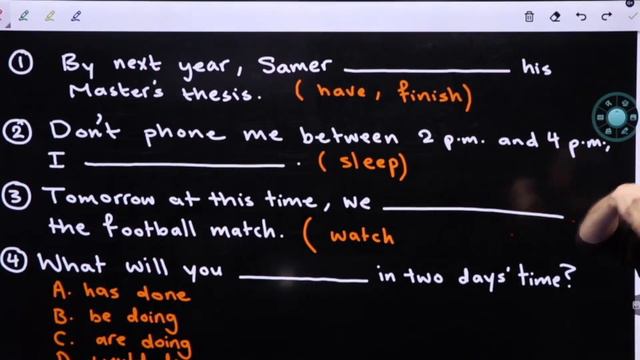 ① By next year, Samer __________ his
Master's thesis. (have, finish)
② Don't phone me between 2 p.m. and 4 p.m.,
I __________. (sleep)
③ Tomorrow at this time, we __________
the football match. (watch
④ What will you __________ in two days' time?
A. has done
B. be doing
C. are doing
D.